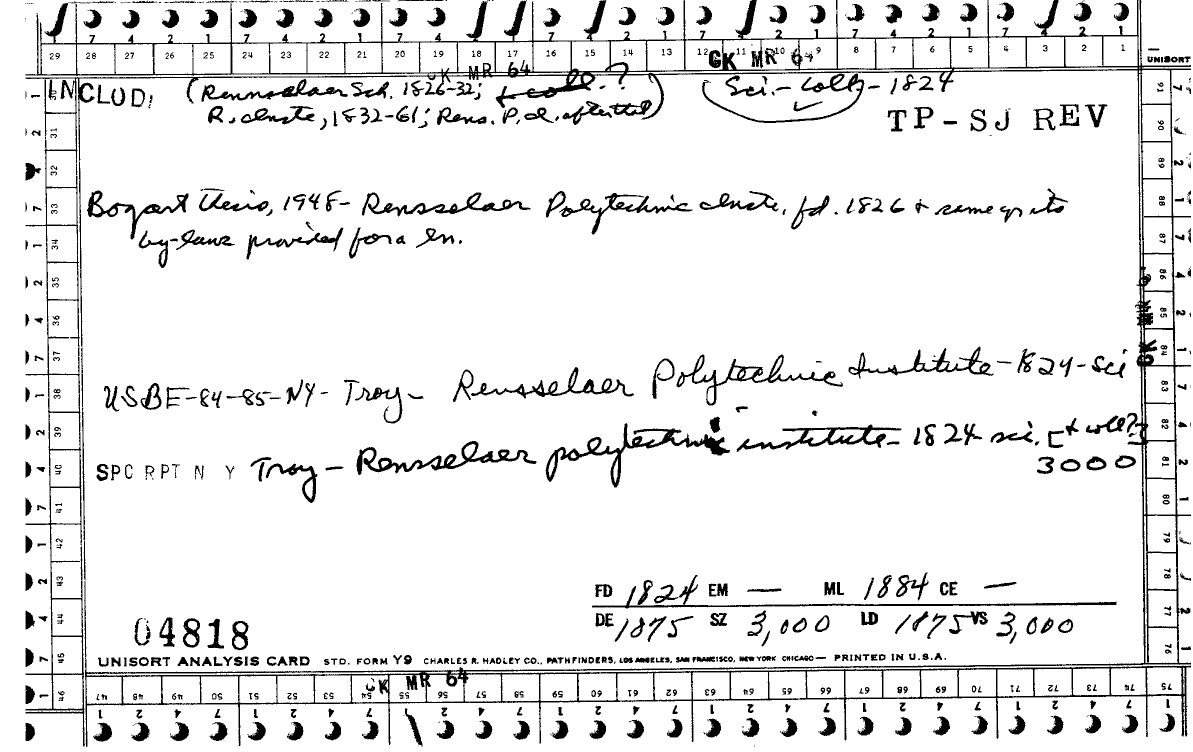 7 4 2 1 7 4 2 1 7 4 2 1 7 4 2 1 7 4 2 1 7 4 2 1 7 4 2 1
29 28 27 26 25 24 23 22 21 20 19 18 17 16 15 14 13 12 11 10 9 8 7 6 5 4 3 2 1
UNISORT
CK MR 64
CK MR 64
INCLUD: (Rennselaer Sch. 1826-32; & coll.?
Sci. - colly - 1824
R. Inste, 1832-61; Rens. P. I. after that)
TP-SJ REV
Bogart thesis, 1948 - Rensselaer Polytechnic Inste. fd. 1826 + same yr its
by-laws provided for a ln.
USBE-84-85-NY- Troy - Rensselaer Polytechnic Institute - 1824 - Sci
SPC RPT N Y Troy - Rensselaer polytechnic institute - 1824 sci. [+ coll?]
3000
FD 1824 EM — ML 1884 CE —
DE 1875 SZ 3,000 LD 1875 VS 3,000
04818
UNISORT ANALYSIS CARD STD. FORM Y9 CHARLES R. HADLEY CO., PATHFINDERS, LOS ANGELES, SAN FRANCISCO, NEW YORK CHICAGO — PRINTED IN U.S.A.
CK MR 64
46 47 48 49 50 51 52 53 54 55 56 57 58 59 60 61 62 63 64 65 66 67 68 69 70 71 72 73 74 75